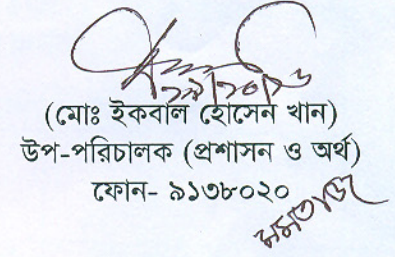 (মোঃ ইকবাল হোসেন খান)
উপ-পরিচালক (প্রশাসন ও অর্থ)
ফোন- ৯১৩৮০২০
মমতাজ